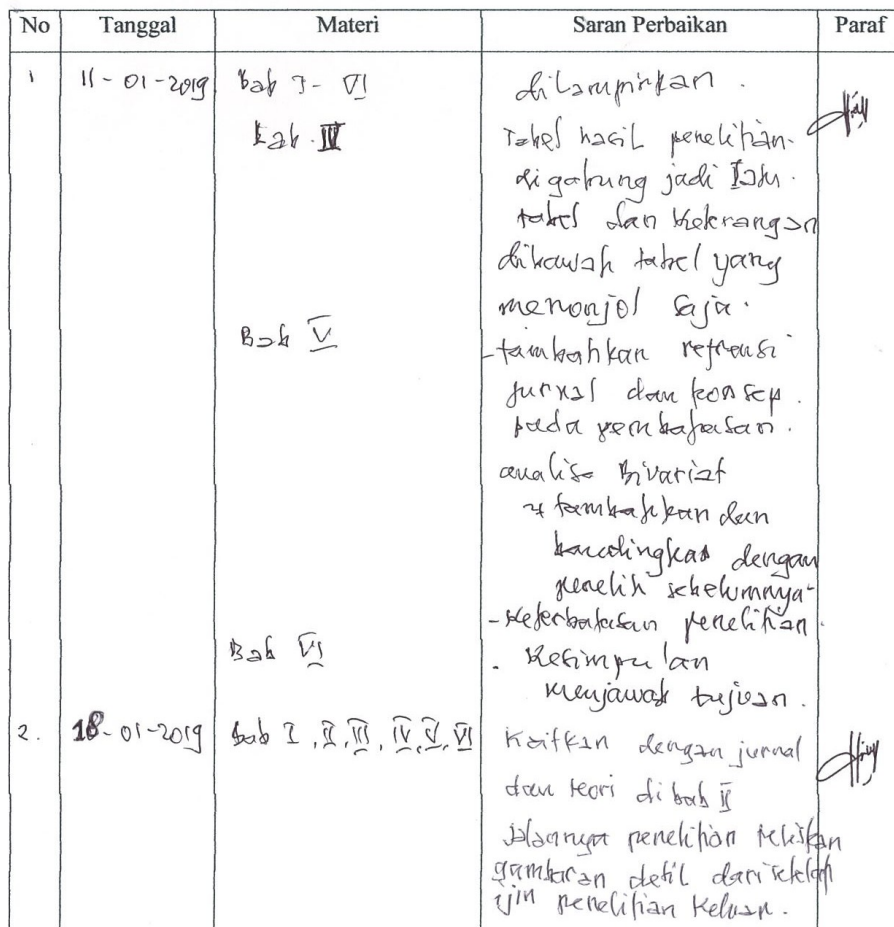 No Tanggal Materi Saran Perbaikan Paraf
1 11-01-2019 Bab I - VI dilampirkan.
Bab. IV Tabel hasil penelitian.
digabung jadi satu.
tabel dan keterangan
dibawah tabel yang
menonjol saja.
Bab V - tambahkan refrensi
jurnal dan konsep.
pada pembahasan.
analisa Bivariat
tambahkan dan
bandingkan dengan
peneliti sebelumnya
- Keterbatasan penelitian.
Bab VI . Kesimpulan
menjawab tujuan.
2. 18-01-2019 Bab I, II, III, IV, V, VI Kaitkan dengan jurnal
dan teori di bab II
jalannya penelitian tuliskan
gambaran detil dari setelah
ijin penelitian keluar.